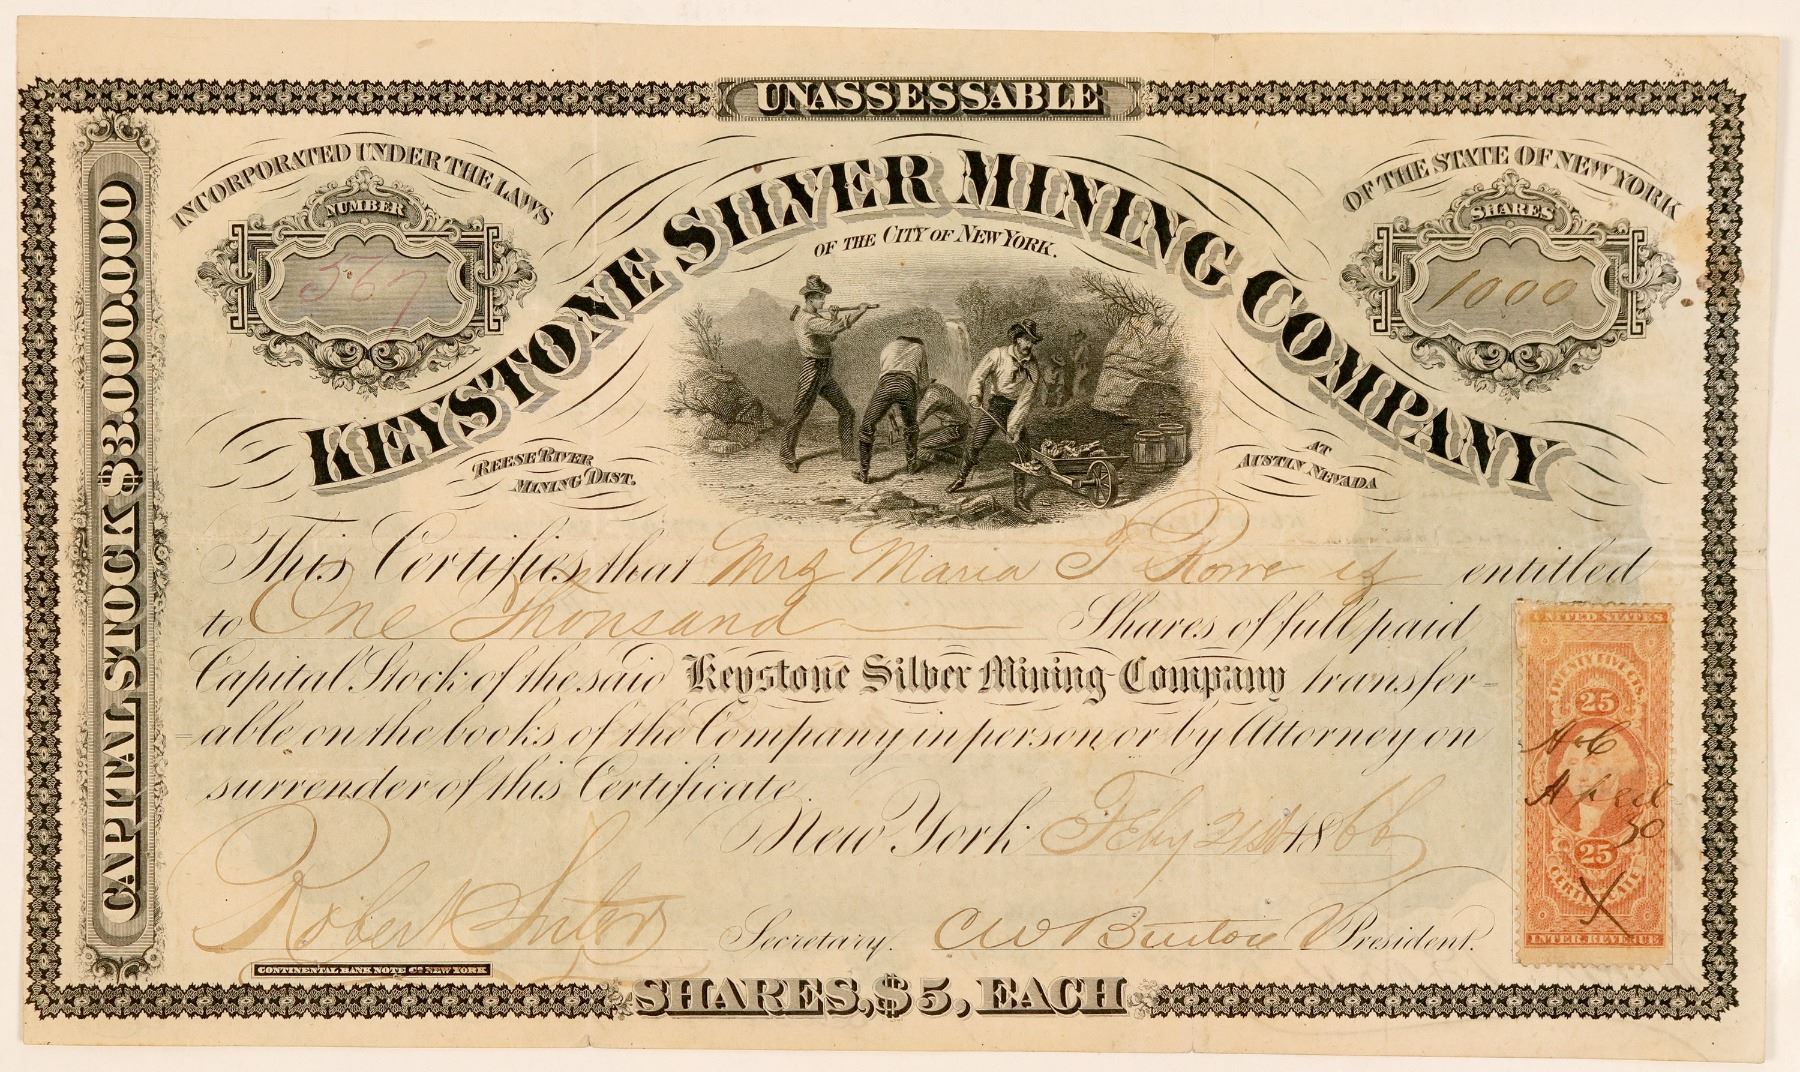 UNASSESSABLE
INCORPORATED UNDER THE LAWS
OF THE STATE OF NEW YORK
NUMBER
567
SHARES
1000
KEYSTONE SILVER MINING COMPANY
OF THE CITY OF NEW YORK.
REESE RIVER
MINING DIST.
AT
AUSTIN NEVADA
CAPITAL STOCK $3.000.000
This Certifies that Mrs Maria T Rowe is entitled
to One Thousand Shares of full paid
Capital Stock of the said Keystone Silver Mining Company transfer-
able on the books of the Company in person or by Attorney on
surrender of this Certificate.
New York Feby 21st 1866
Robert Secretary. C W President.
CONTINENTAL BANK NOTE Co NEW YORK
SHARES, $5, EACH
UNITED STATES
TWENTY FIVE CTS.
25
April
30
25
CERTIFICATE
X
INTER. REVENUE